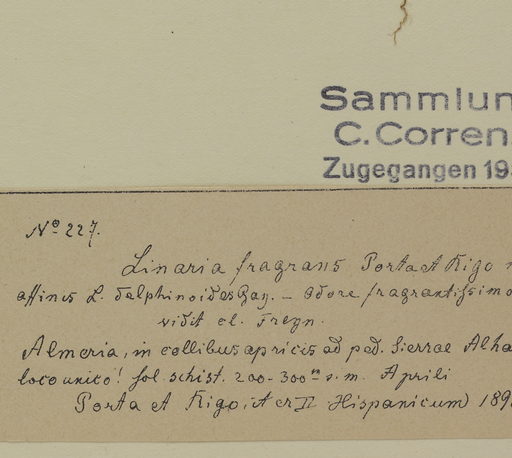 Sammlun
C. Corren
Zugegangen 19
Nº 227.
Linaria fragrans Porta et Rigo n
affinis L. delphinoides Gay. — Odore fragrantissimo
vidit cl. Freyn.
Almeria, in collibus apricis ad ped. Sierrae Alha
loco unico! sol. schist. 200-300 m s. m. Aprili
Porta et Rigo, iter II Hispanicum 189